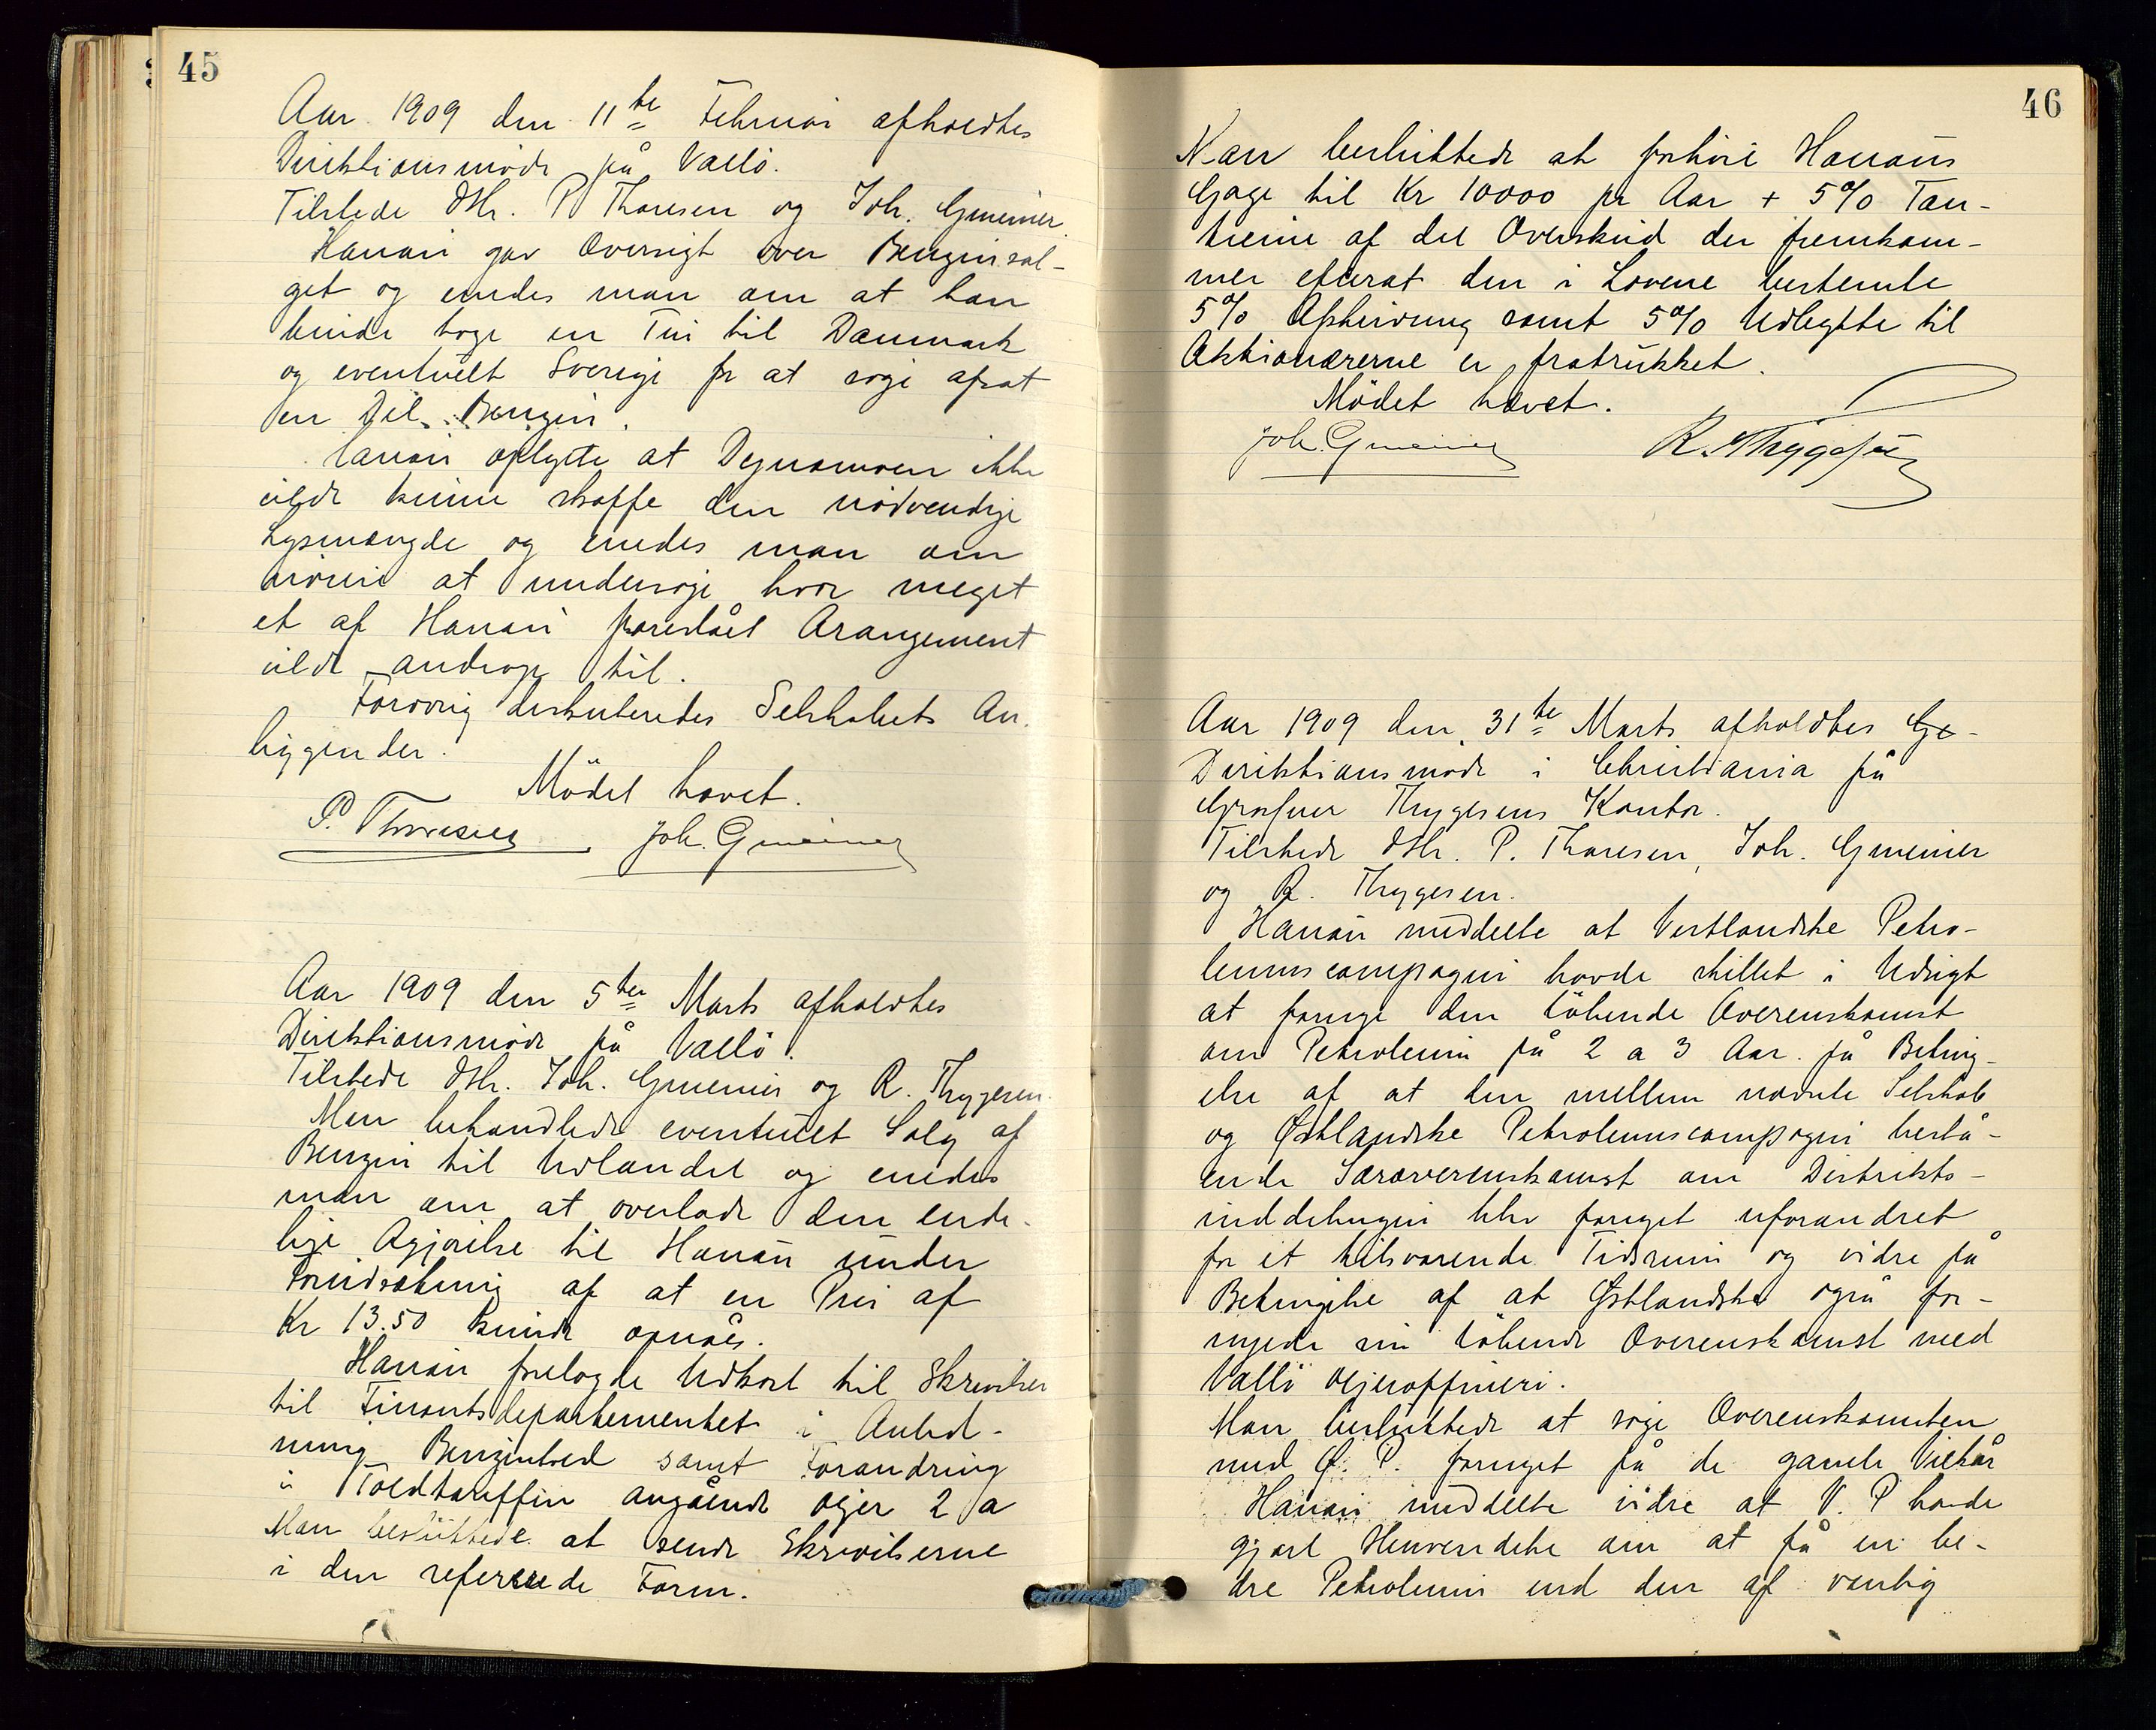 45
Aar 1909 den 11te Februar afholdtes
Direktionsmöde på Vallö.
Tilstede DHr. P Thoresen og Joh. Gmeiner.
Hanan gav Oversigt over Benzinsal-
get og enedes man om at han
burde tage en Tur til Danmark
og eventuelt Sverige for at söge afsat
en Del Benzin.
Hanan oplyste at Dynamoen ikke
vilde kunne skaffe den nödvendige
Lysmængde og enedes man om
at undersöge hvor meget
et af Hanan foreslået Arangement
vilde andrage til.
Forövrig diskuteredes Selskabets An-
liggender.
Mödet hævet.
P. Thoresen Joh. Gmeiner
Aar 1909 den 5te Marts afholdtes
Direktionsmöde på Vallö.
Tilstede DHr. Joh. Gmeiner og R. Thygesen.
Man behandlede eventuelt Salg af
Benzin til Udlandet og enedes
man om at overlade den ende-
lige Afgjörelse til Hanan under
Forudsætning af at en Pris af
Kr 13.50 kunde opnåes.
Hanan forelagde Udkast til Skrivelser
til Finantsdepartementet i Anled-
ning Benzintred samt Forandring
i Toldtariffen angående Oljer 2 a
Man besluttede at sende Skrivelserne
i den refererede Form.
46
Man besluttede at forhöie Hanans
Gage til Kr 10000 pr Aar + 5% Tan-
tieme af det Overskud der fremkom-
mer efterat den i Lovene bestemte
5% Afskrivning samt 5% Udbytte til
Aktionærerne er fratrukket.
Mödet hævet.
Joh. Gmeiner R. Thygesen
Aar 1909 den 31te Marts afholdtes Ge-
Direktionsmöde i Christiania på
Grosserer Thygesens Kontor.
Tilstede DHr. P. Thoresen, Joh. Gmeiner
og R. Thygesen.
Hanan meddelte at Vestlandske Petro-
leumscompagni havde stillet i Udsigt
at fornye den löbende Overenskomst
om Petroleum på 2 a 3 Aar på Beting-
else af at den mellem nævnte Selskab
og Østlandske Petroleumscompagni bestå-
ende Særoverenskomst om Distrikts-
inddelingen blev fornyet uforandret
for et tilsvarende Tidsrum og vidre på
Betingelse af at Østlandske også for-
nyede sin löbende Overenskomst med
Vallö Oljeraffineri.
Man besluttede at söge Overenskomsten
med Ø. P. fornyet på de gamle Vilkår
Hanan meddelte vidre at V. P havde
gjort Henvendelse om at få en be-
dre Petroleum end den af vanlig